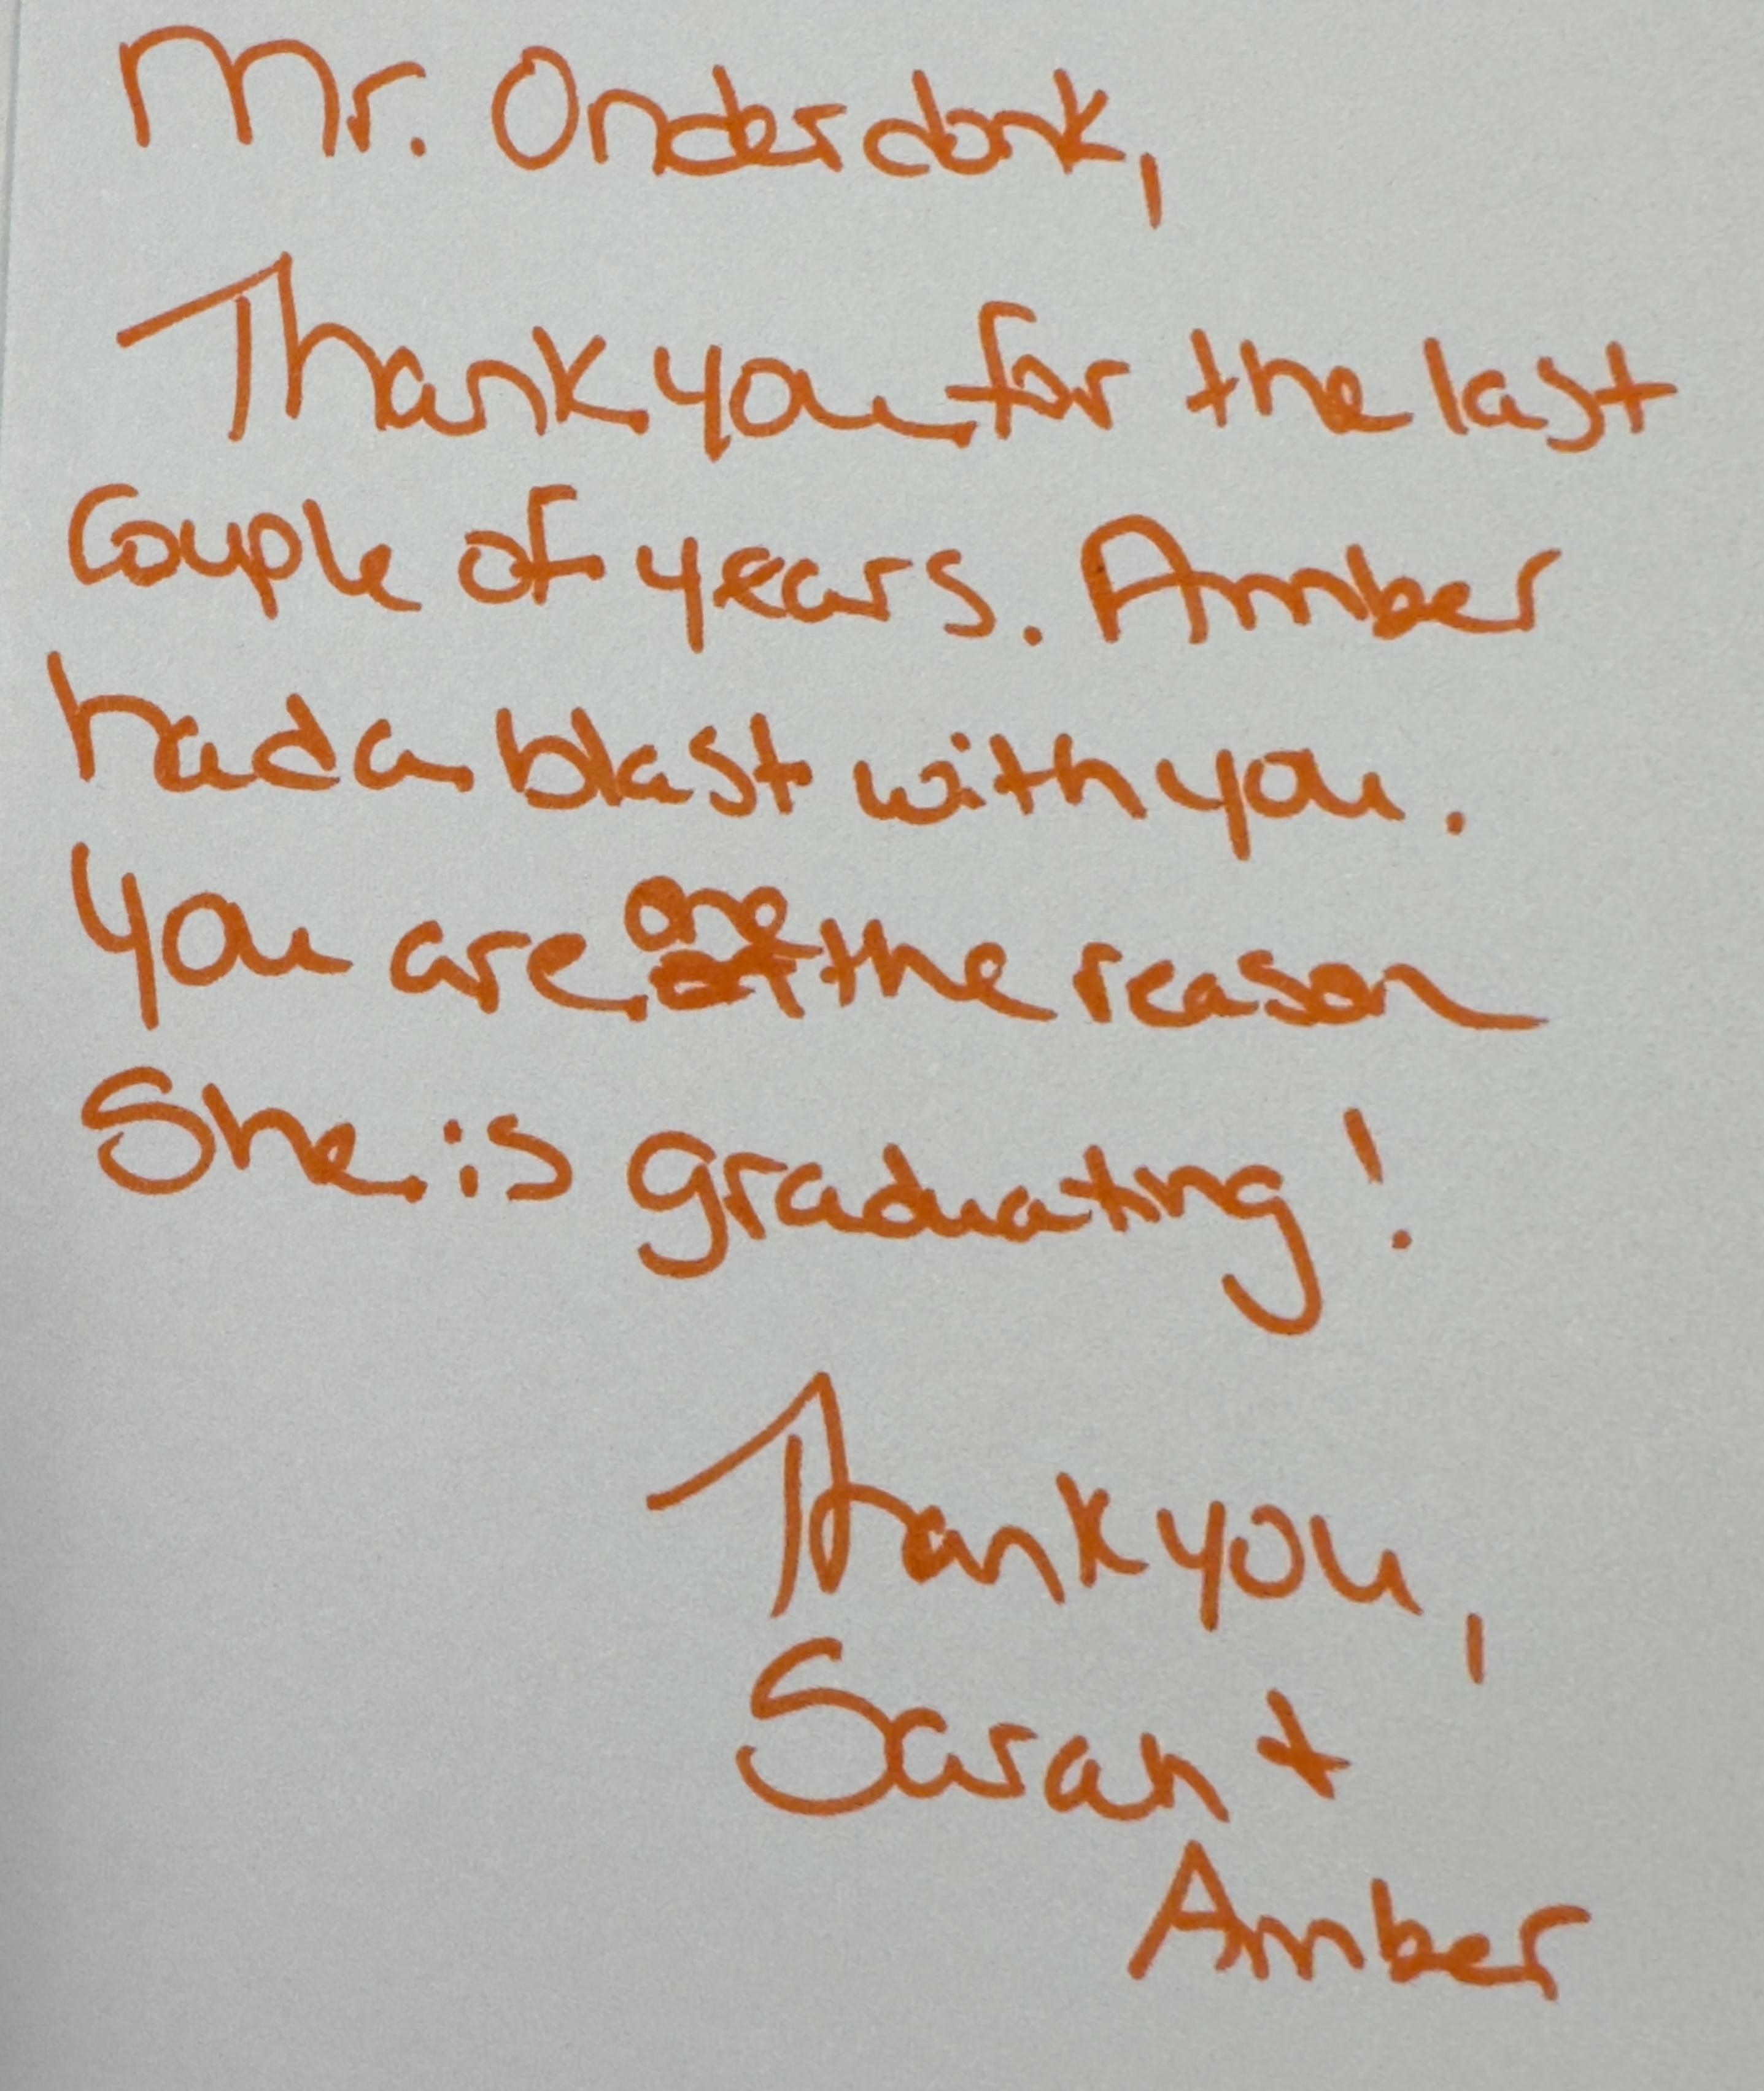 Mr. Onderdonk,
Thank you for the last
Couple of years. Amber
had a blast with you.
You are one of the reason
She is graduating!
Thank you,
Sarah +
Amber